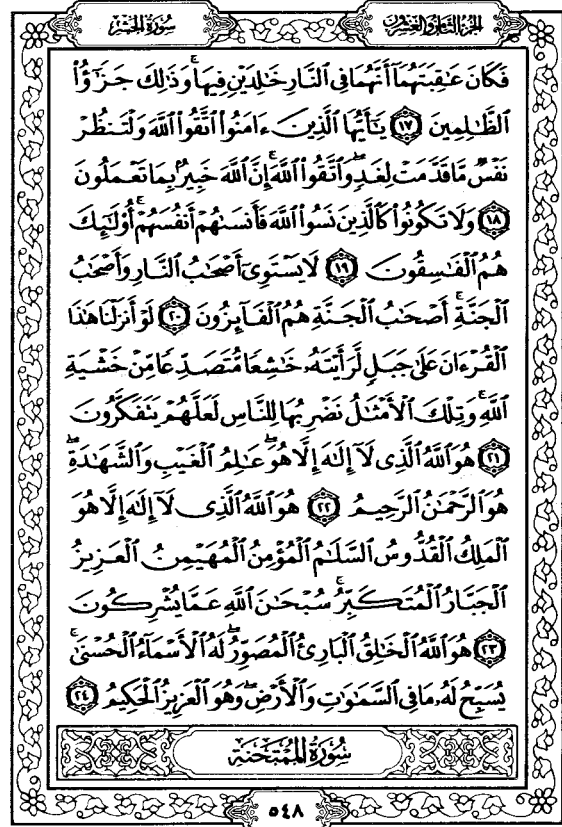 سُورَةُ الحَشْرِ
الجُزْءُ الثَّامِنُ وَالعِشْرُونَ
فَكَانَ عَٰقِبَتَهُمَآ أَنَّهُمَا فِي ٱلنَّارِ خَٰلِدَيْنِ فِيهَا ۚ وَذَٰلِكَ جَزَٰٓؤُا۟
ٱلظَّٰلِمِينَ ١٧ يَٰٓأَيُّهَا ٱلَّذِينَ ءَامَنُوا۟ ٱتَّقُوا۟ ٱللَّهَ وَلْتَنظُرْ
نَفْسٌ مَّا قَدَّمَتْ لِغَدٍ ۖ وَٱتَّقُوا۟ ٱللَّهَ ۚ إِنَّ ٱللَّهَ خَبِيرٌۢ بِمَا تَعْمَلُونَ
١٨ وَلَا تَكُونُوا۟ كَٱلَّذِينَ نَسُوا۟ ٱللَّهَ فَأَنسَىٰهُمْ أَنفُسَهُمْ ۚ أُو۟لَٰٓئِكَ
هُمُ ٱلْفَٰسِقُونَ ١٩ لَا يَسْتَوِىٓ أَصْحَٰبُ ٱلنَّارِ وَأَصْحَٰبُ
ٱلْجَنَّةِ ۚ أَصْحَٰبُ ٱلْجَنَّةِ هُمُ ٱلْفَآئِزُونَ ٢٠ لَوْ أَنزَلْنَا هَٰذَا
ٱلْقُرْءَانَ عَلَىٰ جَبَلٍ لَّرَأَيْتَهُۥ خَٰشِعًا مُّتَصَدِّعًا مِّنْ خَشْيَةِ
ٱللَّهِ ۚ وَتِلْكَ ٱلْأَمْثَٰلُ نَضْرِبُهَا لِلنَّاسِ لَعَلَّهُمْ يَتَفَكَّرُونَ
٢١ هُوَ ٱللَّهُ ٱلَّذِى لَآ إِلَٰهَ إِلَّا هُوَ ۖ عَٰلِمُ ٱلْغَيْبِ وَٱلشَّهَٰدَةِ ۖ
هُوَ ٱلرَّحْمَٰنُ ٱلرَّحِيمُ ٢٢ هُوَ ٱللَّهُ ٱلَّذِى لَآ إِلَٰهَ إِلَّا هُوَ
ٱلْمَلِكُ ٱلْقُدُّوسُ ٱلسَّلَٰمُ ٱلْمُؤْمِنُ ٱلْمُهَيْمِنُ ٱلْعَزِيزُ
ٱلْجَبَّارُ ٱلْمُتَكَبِّرُ ۚ سُبْحَٰنَ ٱللَّهِ عَمَّا يُشْرِكُونَ
٢٣ هُوَ ٱللَّهُ ٱلْخَٰلِقُ ٱلْبَارِئُ ٱلْمُصَوِّرُ ۖ لَهُ ٱلْأَسْمَآءُ ٱلْحُسْنَىٰ ۚ
يُسَبِّحُ لَهُۥ مَا فِي ٱلسَّمَٰوَٰتِ وَٱلْأَرْضِ ۖ وَهُوَ ٱلْعَزِيزُ ٱلْحَكِيمُ ٢٤
سُورَةُ المُمْتَحنَةِ
٥٤٨